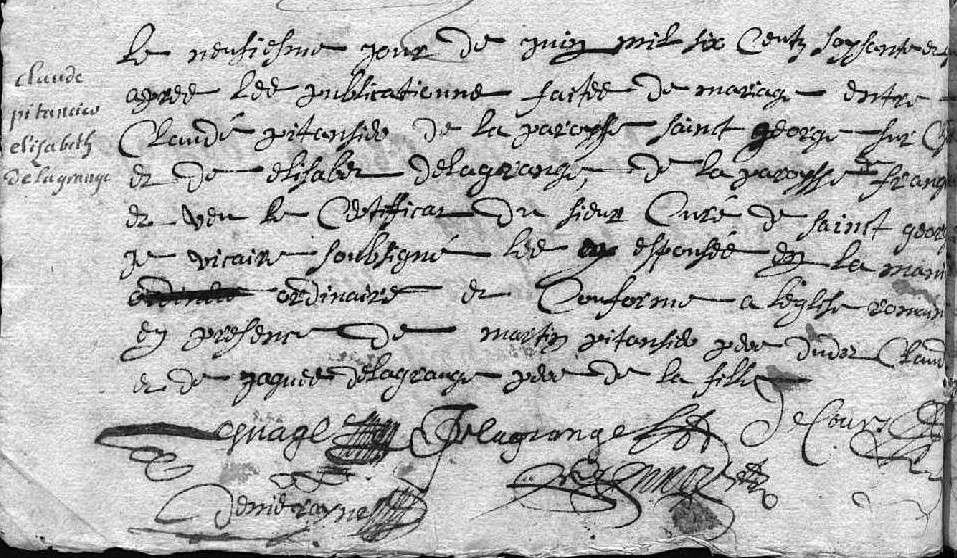 claude
pitancier
elisabeth
delagrange
Le neufiesme jour de juin mil six Centz soyssante et
apres les publicatienns faites de mariage entre
Claude pitansier de la paroysse sainct george sur
et de elisabet delagrange, de la paroysse
et veu le Certifficat du sieur Curé de sainct george
je vicaire soubsigné les ay espousés en la mani
ordinaire et Conforme a leglise romain
en presence de martin pitansier pere dudet Claud
et de jaques delagrange pere de la fille
Delagrange De Cours